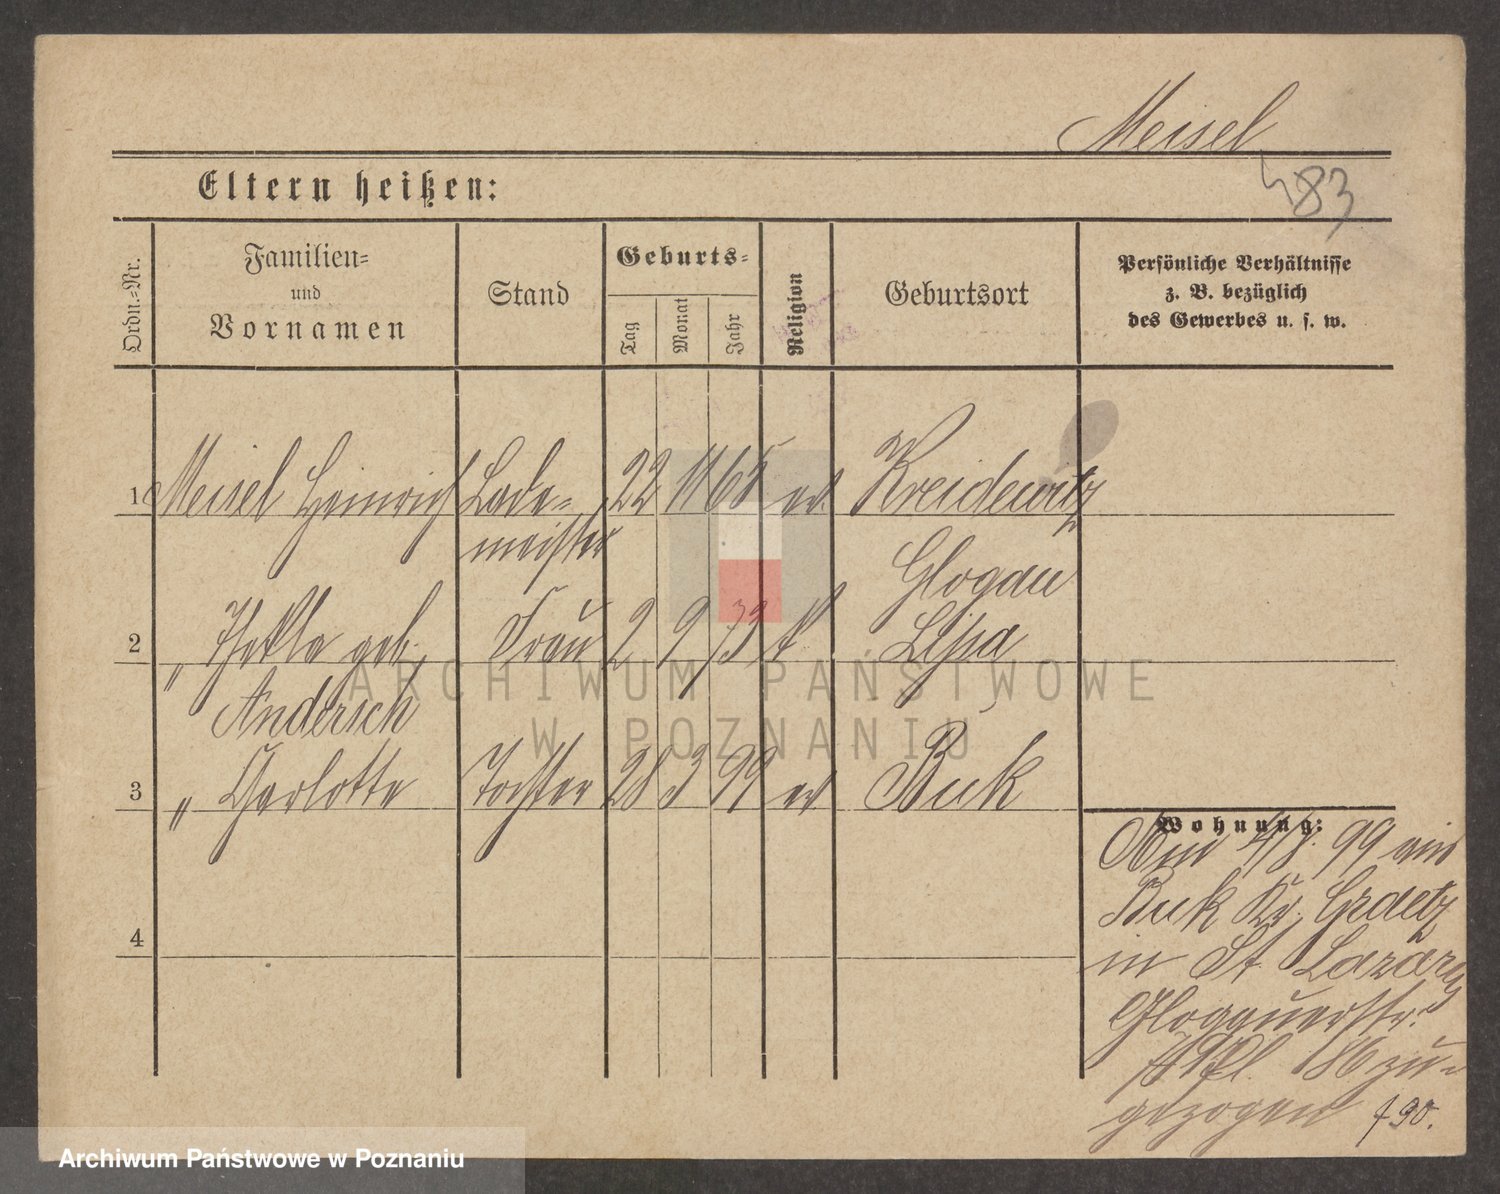 Meisel
83
Eltern heißen:
Ordn.=Nr.
Familien=
und
Vornamen
Stand
Geburts=
Tag
Monat
Jahr
Religion
Geburtsort
Persönliche Verhältnisse
z. B. bezüglich
des Gewerbes u. s. w.
1 Meisel Heinrich Lade= 22 11 65 ev. Kreidewitz
meister Glogau
2 " Thekla geb. Frau 2 9 73 k Lissa
Andersch
3 " Charlotte Tochter 28 3 99 ev Buk
4
Wohnung:
Am 4/8. 99 aus
Buk Kr. Graetz
in St Lazarus
Glogauerstr.
186 zu=
gezogen 90.
ARCHIWUM PAŃSTWOWE
W POZNANIU
Archiwum Państwowe w Poznaniu